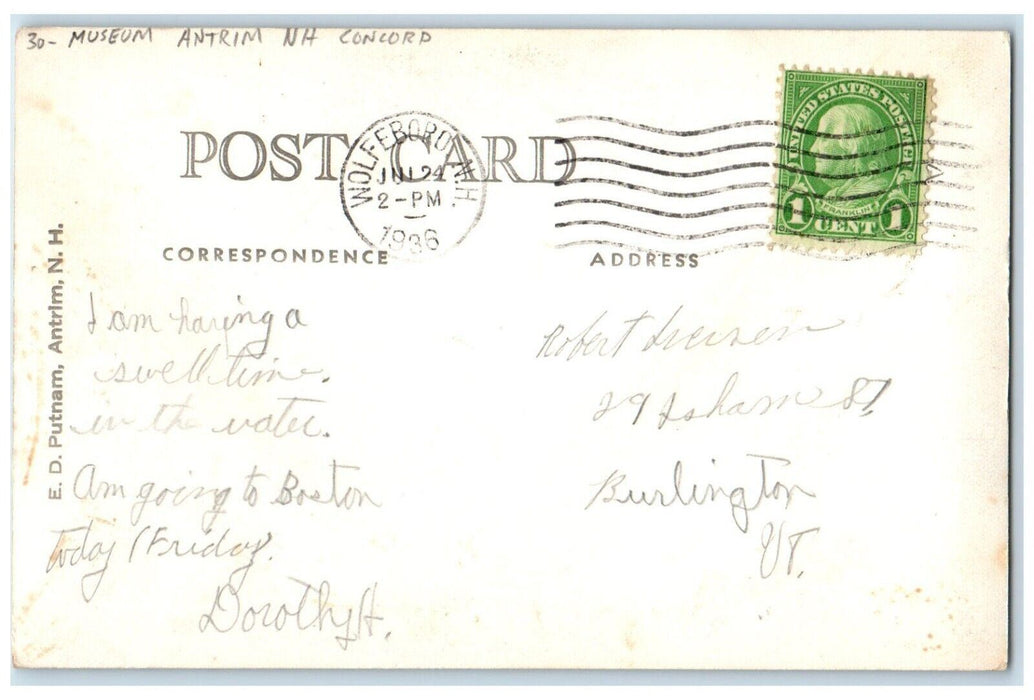 30- MUSEUM ANTRIM NH CONCORD
POST CARD
WOLFEBORO N.H.
JUL 24
2-PM
1936
UNITED STATES POSTAGE
FRANKLIN
1 CENT 1
CORRESPONDENCE
ADDRESS
E. D. Putnam, Antrim, N. H.
I am having a
swell time.
in the water.
Am going to Boston
today (Friday).
Dorothy H.
Robert
29 Isham St.
Burlington
VT.